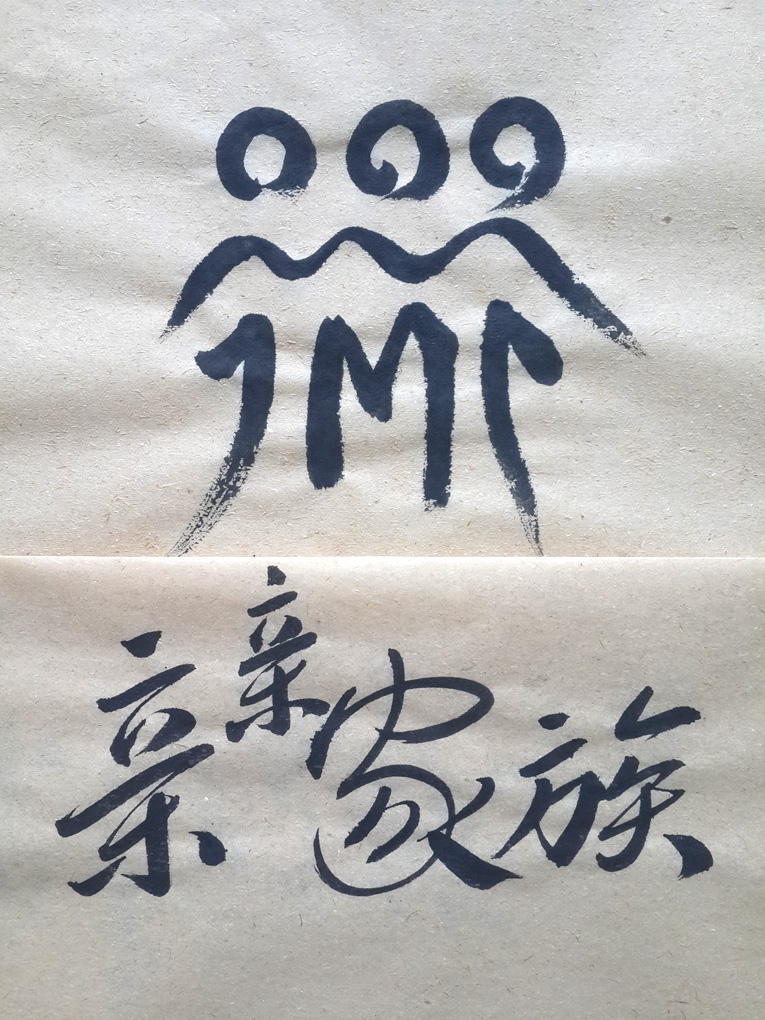 JMT
亲亲家族